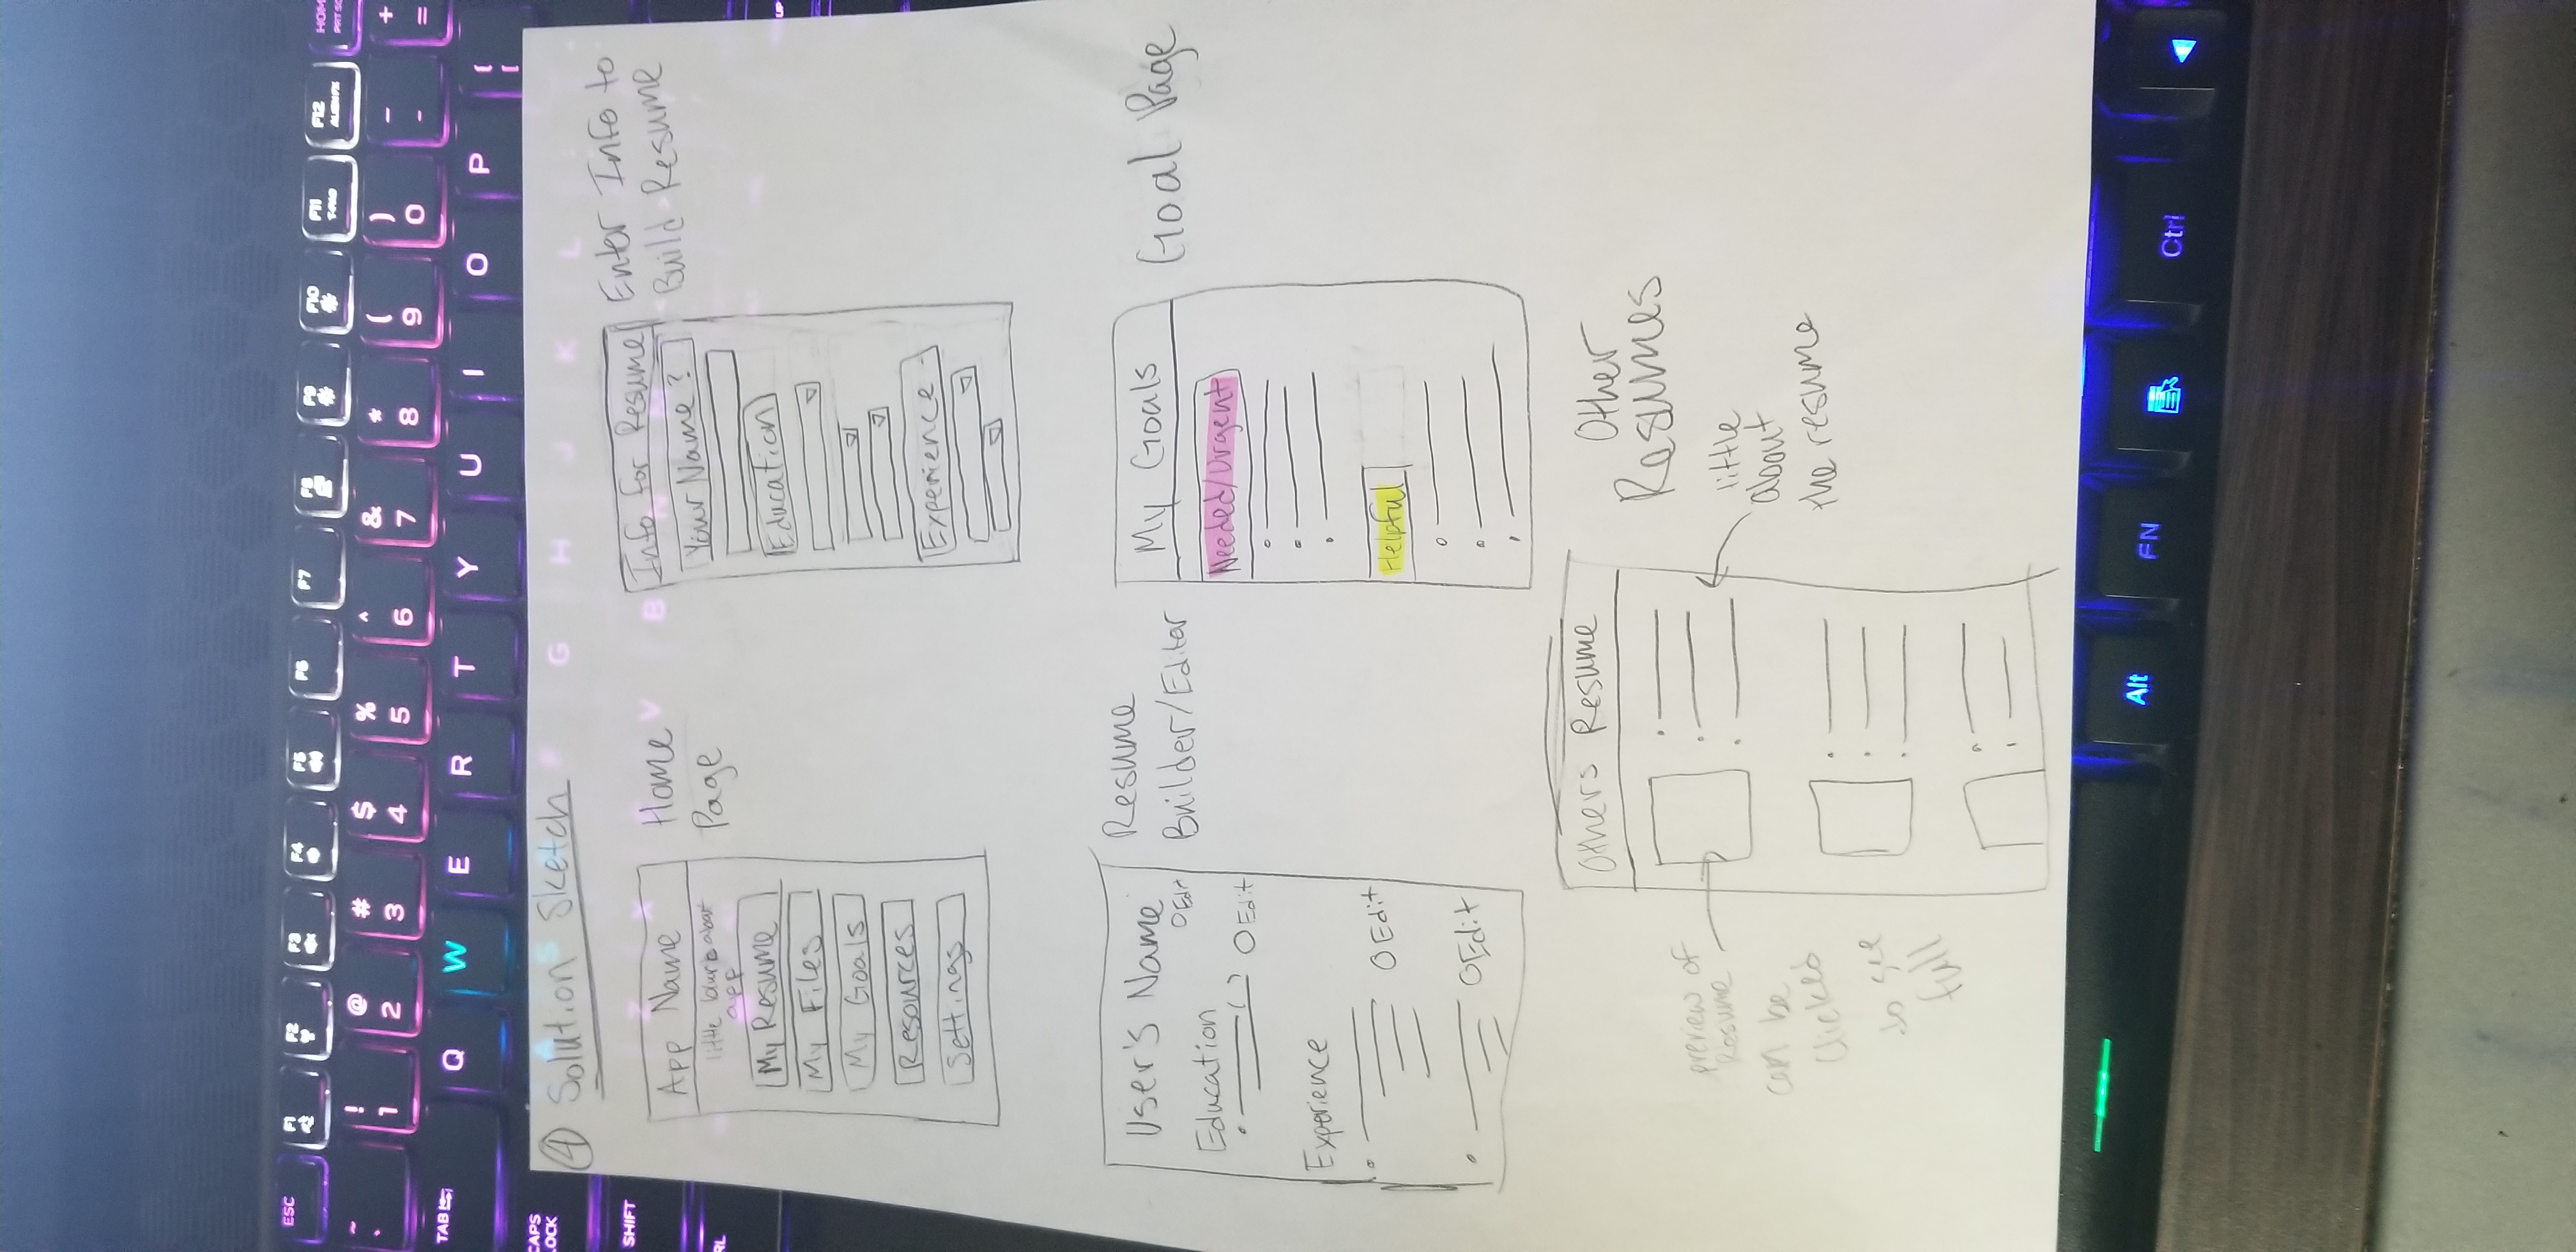 ESC F1 F2 F3 F4 F5 F6 F7 F8 F9 F10 F11 F12 HOM
T-PAD ALIENFX PRT SC
~ ! @ # $ % ^ & * ( ) - +
1 2 3 4 5 6 7 8 9 0 - =
TAB Q W E R T Y U I O P [
[
CAPS
LOCK
G H J K L
SHIFT
Z X V B N
RL
UP
④ Solution Sketch
App Name
little blurb about
app
My Resume
My Files
My Goals
Resources
Settings
Home
Page
Info for Resume
Your Name?
Education
Experience -
Enter Info to
Build Resume
User's Name
Edit
Education
( ) Edit
Experience
Edit
Edit
Resume
Builder/Editor
My Goals
Needed/Urgent
Helpful
Goal Page
Others Resume
preview of
Resume
can be
clicked
to see
full
Other
Resumes
little
about
the resume
Alt FN Ctrl